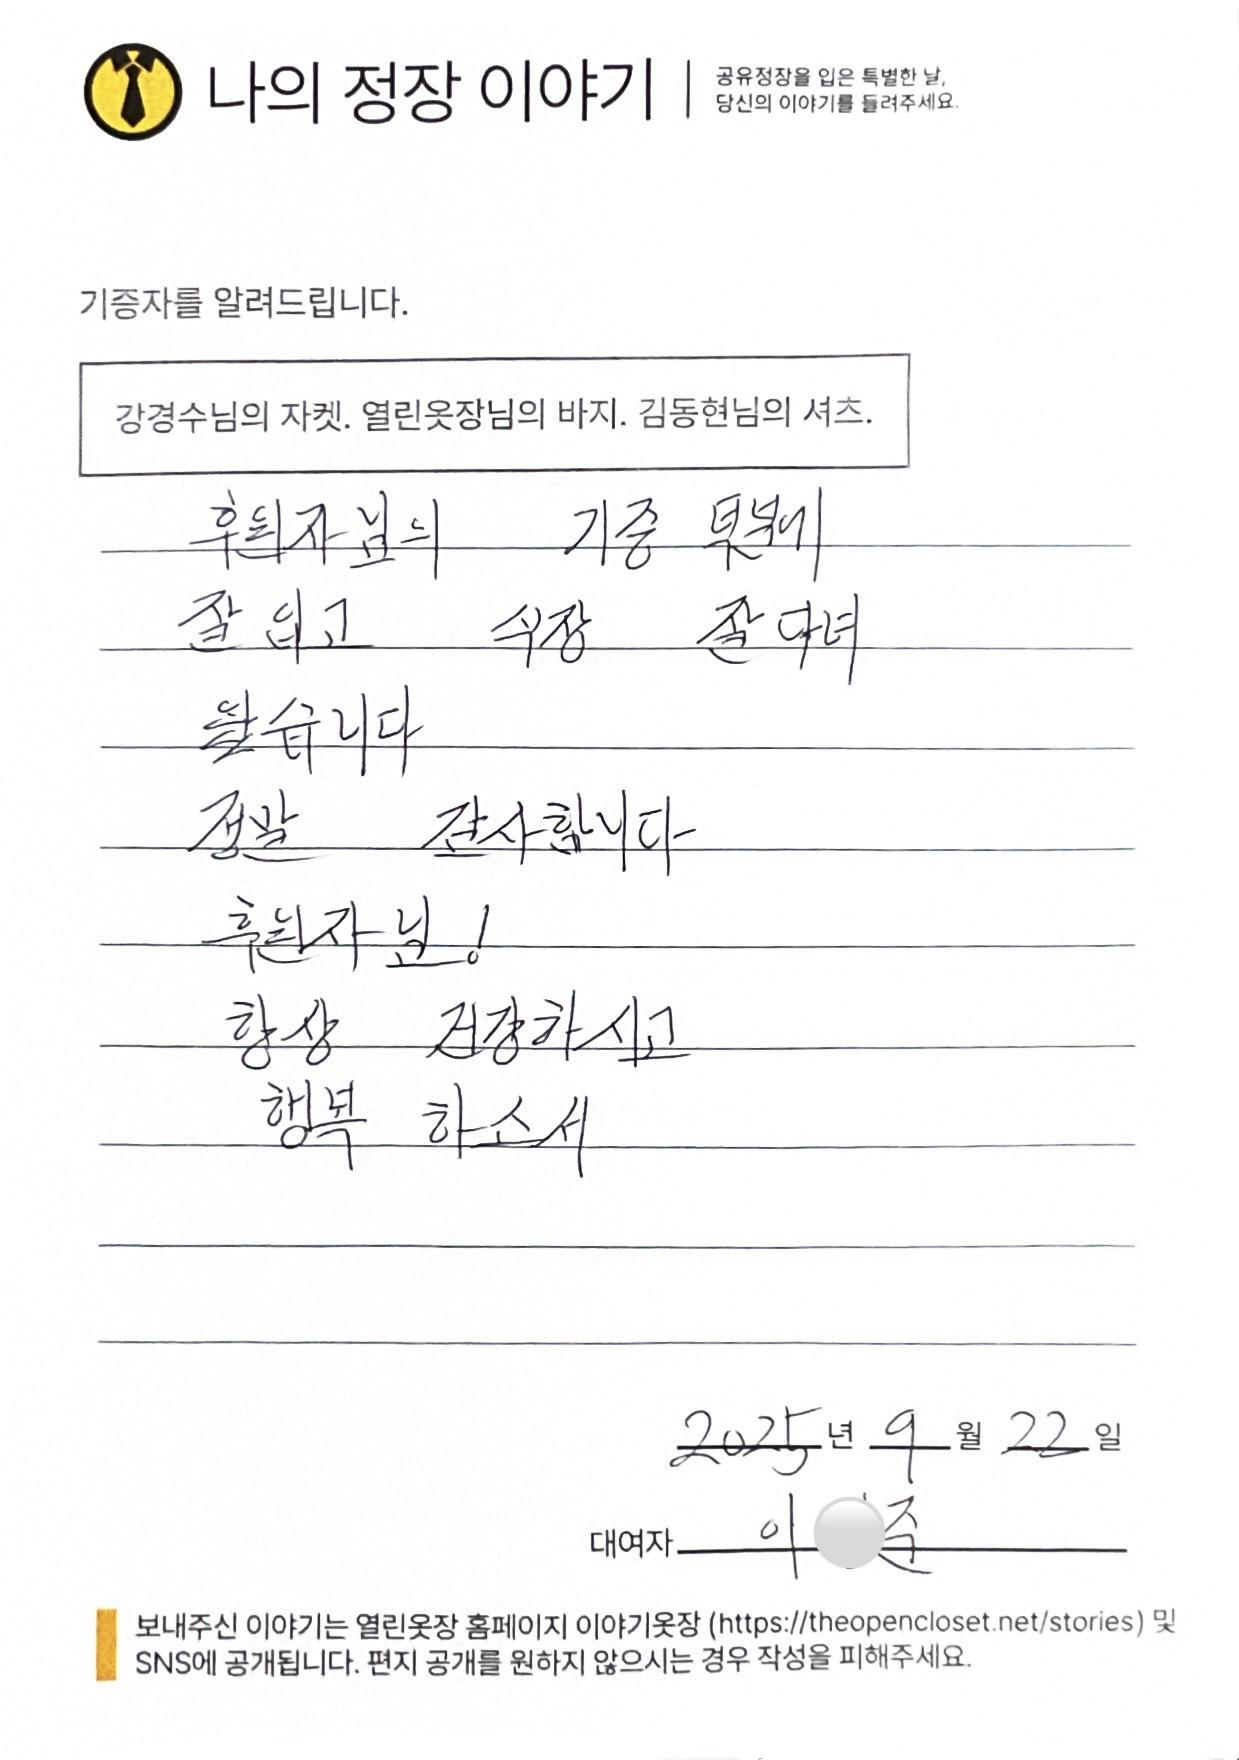 나의 정장 이야기
공유정장을 입은 특별한 날,
당신의 이야기를 들려주세요.
기증자를 알려드립니다.
강경수님의 자켓. 열린옷장님의 바지. 김동현님의 셔츠.
후원자님의 기증 덕분에
잘 입고 식장 잘 다녀
왔습니다
정말 감사합니다
후원자님!
항상 건강하시고
행복 하소서
2025년 9월 22일
대여자 이 준
보내주신 이야기는 열린옷장 홈페이지 이야기옷장 (https://theopencloset.net/stories) 및
SNS에 공개됩니다. 편지 공개를 원하지 않으시는 경우 작성을 피해주세요.